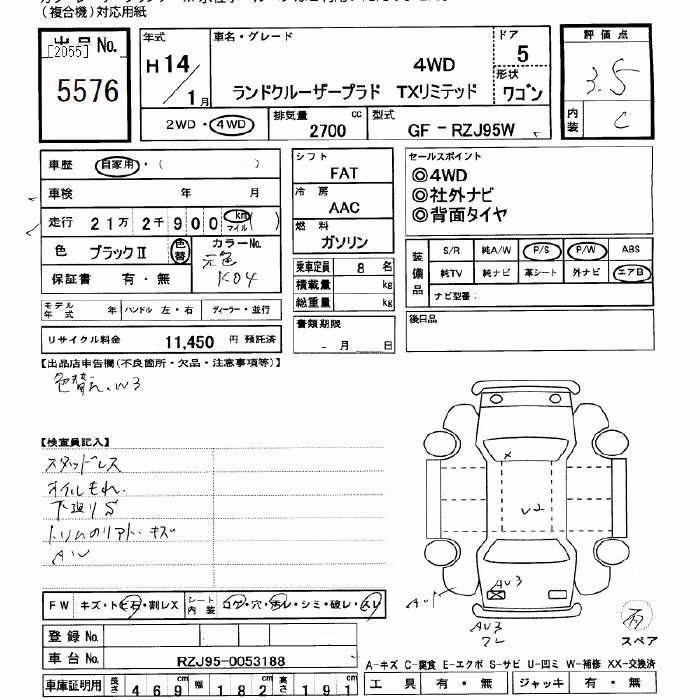 (複合機)対応用紙
出品No.
[2055]
5576
年式
H 14/1月
車名・グレード
4WD
ランドクルーザープラド TXリミテッド
ドア
5
形状
ワゴン
評価点
3.5
内装
C
2WD・4WD
排気量
2700 cc
型式
GF-RZJ95W
車歴 自家用・( )
車検 年 月
走行 21万2千900 km マイル ( )
色 ブラックⅡ 色替
カラーNo.
元色
K04
保証書 有・無
モデル年式 年 ハンドル 左・右 ディーラー・並行
リサイクル料金 11,450 円 預託済
シフト
FAT
冷房
AAC
燃料
ガソリン
乗車定員 8 名
積載量 kg
総重量 kg
書類期限
- 月 日
セールスポイント
◎4WD
◎社外ナビ
◎背面タイヤ
装備品
S/R 純A/W P/S P/W ABS
純TV 純ナビ 革シート 外ナビ エアB
ナビ型番:
後日品
【出品店申告欄(不良箇所・欠品・注意事項等)】
色替え.W3
【検査員記入】
スタッドレス
オイルもれ.
下廻りS
トリムのリアト・キズ
AW
FW キズ・トビ石・割レX シート内装 コゲ・穴・汚レ・シミ・破レ・スレ
登録No.
車台No. RZJ95-0053188
車庫証明用 長さ 469cm 幅 182cm 高さ 191
U2
AU1
AU3
AU3
スペア
A-キズ C-腐食 E-エクボ S-サビ U-凹ミ W-補修 XX-交換済
工具 有・無 ジャッキ 有・無